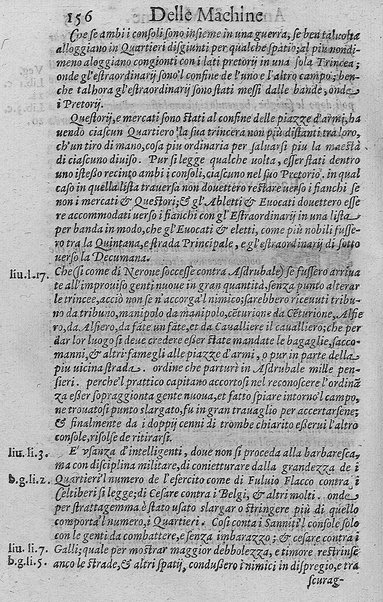 156 Delle Machine
Che se ambi i consoli sono insieme in una guerra, se ben talvolta
alloggiano in Quartieri disgiunti per qualche spatio; al piu nondi-
meno aloggiano congionti con i lati pretorij in una sola Trincea;
onde gl'estraordinarij sono'l confine de l'uno e l'altro campo; ben-
che talhora gl'estraordinarij sono stati messi dalle bande, onde
i Pretorij.
Questorij, e mercati sono stati al confine delle piazze d'armi, ha
uendo ciascun Quartiero'la sua trincera non più distanti tra loro,
ch'un tiro di mano, cosa piu ordinaria per saluarsi piu la maestà
di ciascuno diuiso. Pur si legge qualche uolta, esser stati dentro
uno istesso recinto ambi i consoli, ciascuno nel suo Pretorio. in qual
caso in quella lista trauersa non douettero restare uerso i fianchi se
non i mercati & Questori; & gl'Ableti & Euocati douettero esse
re accommodati uerso i fianchi con gl'Estraordinarij in una lista
per banda in modo, che gl'Euocati & eletti, come più nobili fusse-
ro tra la Quintana, e strada Principale, e gl'estraordinarij di sotto
verso la Decumana.
liu.l.17. Che (si come di Nerone soccesse contra Asdrubale) se fussero arriua
te all'improuiso genti nuoue in gran quantità, senza punto alterar
le trincee, acciò non se n'accorga'l nimico; sarebbero riceuuti tribu
no da tribuno, manipolo da manipolo, cẽturione da Cẽturione, Alfie
ro, da Alfiero, da fãte un fãte, et da Cavalliere il cavalliero; che per
dar lor luogo si deue credere esser state mandate le bagaglie, sacco-
manni, & altri famegli alle piazze d'armi, o pur in parte della
piu uicina strada. ordine che parturì in Asdrubale mille pen-
sieri. perche'l prattico capitano accortosi nel reconoscere l'ordinã
za esser sopraggionta gente nuoua, et fatto spiare intorno'l campo,
ne trouatosi punto slargato, fu in gran trauaglio per accertarsene;
& finalmente da i doppij cenni di trombe chiarito esserui l'altro
console, risolse de ritirarsi.
liu.li.3. E' vsanza d'intelligenti, doue non si proceda alla barbaresca,
ma con disciplina militare, di conietturare dalla grandezza de i
b.g.li.2. Quartieri'l numero de l'esercito come di Fuluio Flacco contra i
Celtiberi si legge; di Cesare contra i Belgi, & altri molti. onde
per strattagemma è stato usato slargar o stringere più di quello
comporta'l numero, i Quartieri. Cosi conta i Sanniti'l console solo
con le genti da combattere, e senza imbarazzo; & cesare contra i
liu.li.7. Galli; quale per mostrar maggior debbolezza, e timore restrinse
b.g.li.5. anco le strade, & altri spatij, condussero i nimici in dispregio, e tra
scurag-